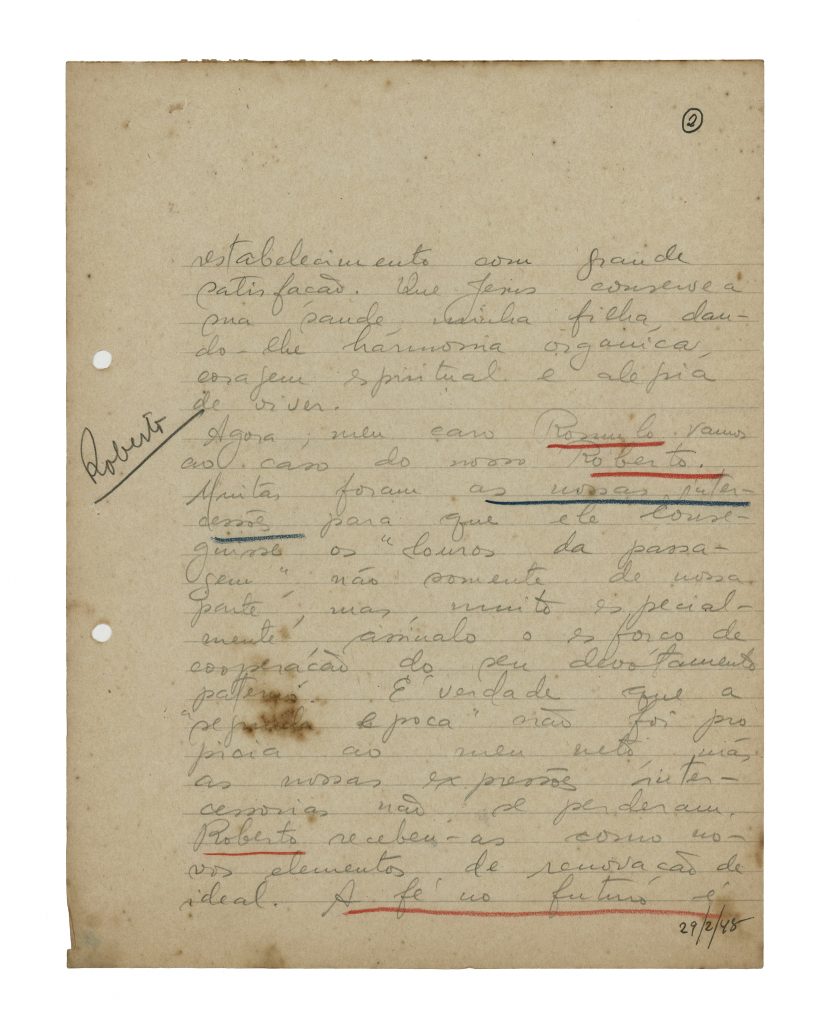 2
restabelecimento com grande
satisfacão. Que Jesus conserve a
sua saude minha filha dan-
do-lhe hármonia orgânica,
coragem espiritual e alegria
de viver.
Roberto
Agora, meu caro Romulo vamos
ao caso do nosso Roberto.
Muitas foram as nossas inter-
cessões para que ele conse-
guisse os "louros da passa-
gem", não somente de nossa
parte, mas muito especial-
mente assinalo o esforço de
cooperação do seu devotamento
paterno. É verdade que a
"segunda época" não foi pro
picia ao meu neto mas
as nossas expressões inter-
cessorias não se perderam.
Roberto recebeu-as como no-
vos elementos de renovacão de
ideal. A fé no futuro é
29/2/48